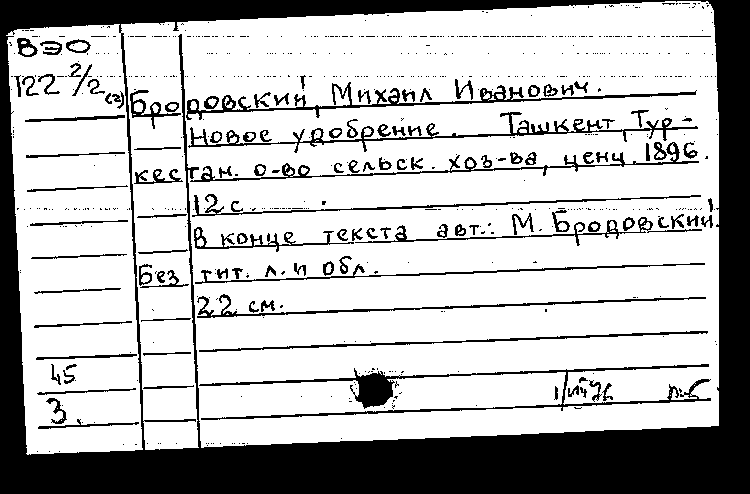 ВЭО
122 2/2 (2)
Бродовский, Михаил Иванович.
Новое удобрение. Ташкент, Тур-
кестан. о-во сельск. хоз-ва, ценз. 1896.
12 с.
В конце текста авт.: М. Бродовский.
Без тит. л. и обл.
22 см.
45
3.